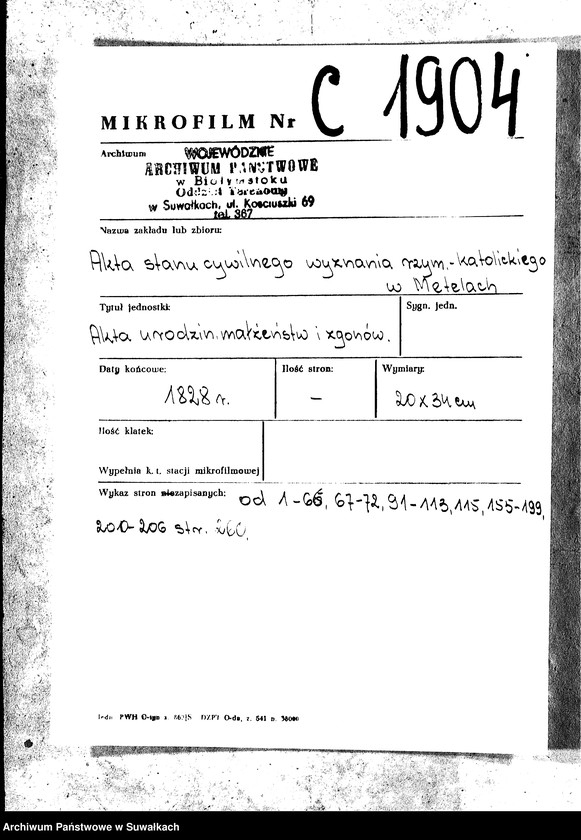 MIKROFILM Nr C 1904
Archiwum
WOJEWÓDZKIE
ARCHIWUM PAŃSTWOWE
w Białymstoku
Oddział Terenowy
w Suwałkach, ul. Kościuszki 69
tel. 367
Nazwa zakładu lub zbioru:
Akta stanu cywilnego wyznania rzym.-katolickiego
w Metelach
Tytuł jednostki:
Sygn. jedn.
Akta urodzin, małżeństw i zgonów.
Daty końcowe:
Ilość stron:
Wymiary:
1828 r.
–
20 x 34 cm
Ilość klatek:
Wypełnia k. t. stacji mikrofilmowej
Wykaz stron niezapisanych: od 1-66, 67-72, 91-113, 115, 155-199,
200-206 str. 260.
PWH O-ign z. DZPT O-da, z. 541 n. 38000
Archiwum Państwowe w Suwałkach